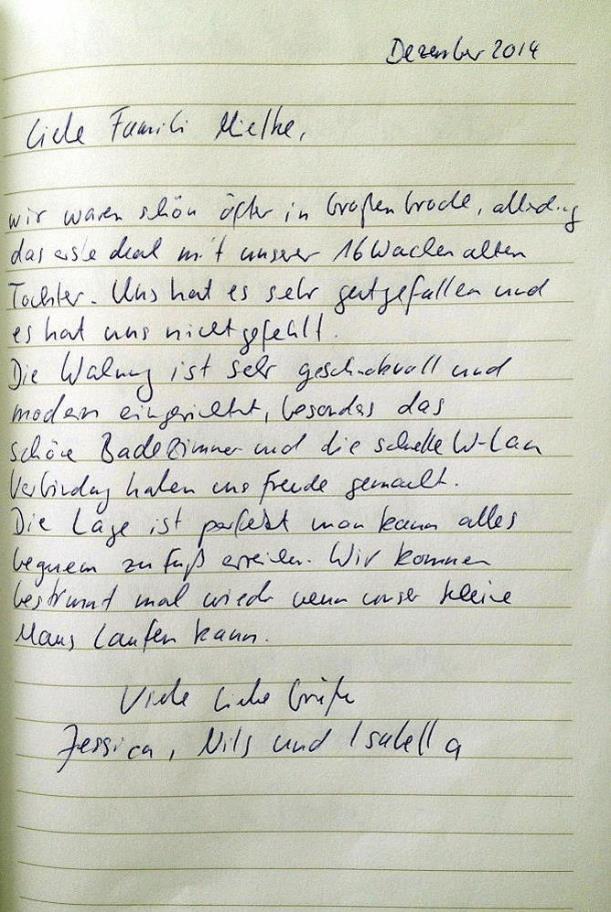 Dezember 2014
Liebe Famili Mielke,
wir waren schön öfter in Großenbrode, allerding
das erste Mal mit unserer 16 Wochen alten
Tochter. Uns hat es sehr gut gefallen und
es hat uns nicht gefehlt.
Die Wohnung ist sehr geschmackvoll und
modern eingerichtet, besonders das
schöne Badezimmer und die schnelle W-Lan
Verbindung haben uns Freude gemacht.
Die Lage ist perfekt man kann alles
bequem zu Fuß erreichen. Wir kommen
bestimmt mal wieder wenn unser kleine
Maus laufen kann.
Viele liebe Grüße
Jessica, Nils und Isabella